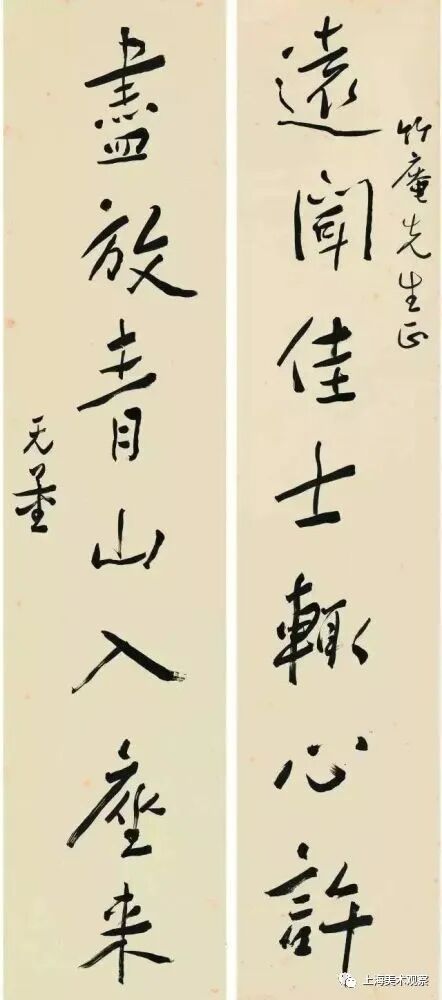 竹庵先生正
遠聞佳士輒心許
盡放青山入座来
无量
上海美术观察